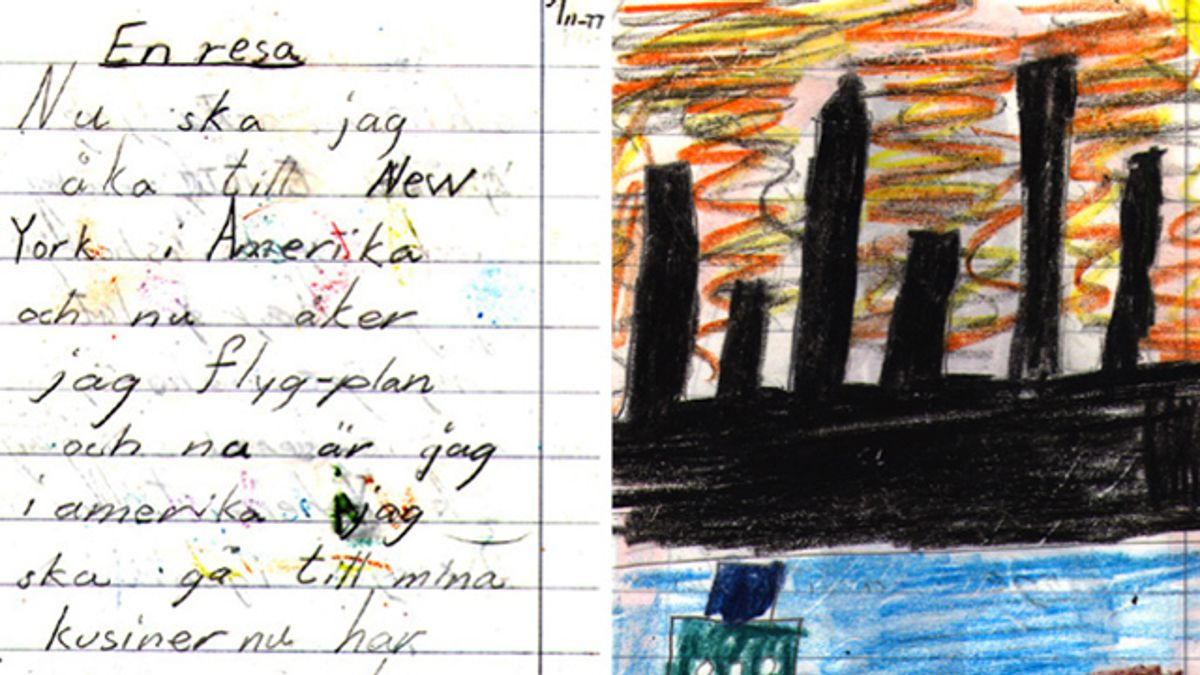 En resa
Nu ska jag
åka till New
York i Amerika
och nu åker
jag flyg-plan
och nu är jag
i amerika jag
ska gå till mina
kusiner nu har